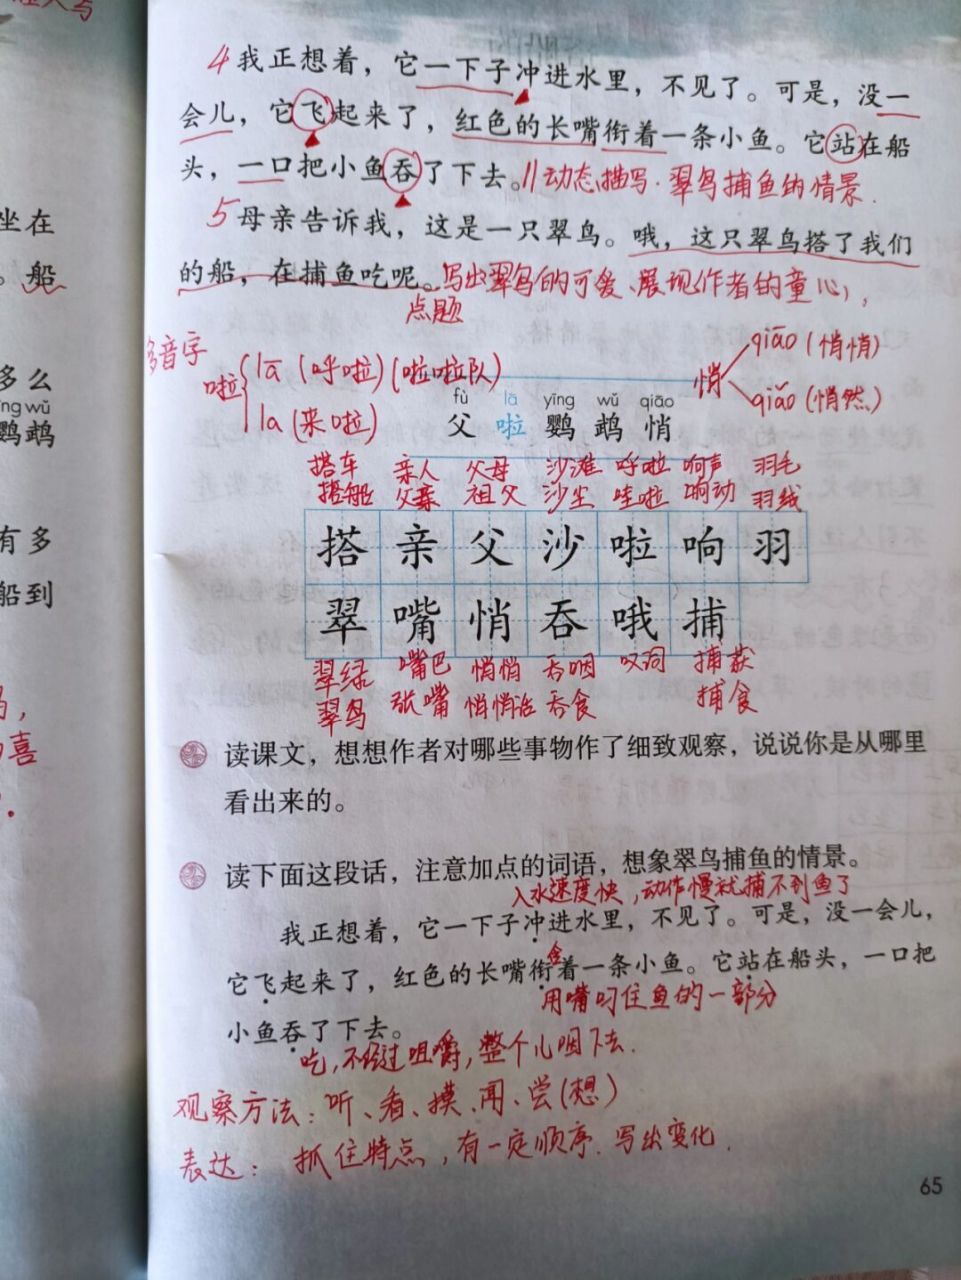 坐在
。船
多么
ngwǔ
鹦鹉
有多
船到
喜
4 我正想着，它一下子冲进水里，不见了。可是，没一
会儿，它飞起来了，红色的长嘴衔着一条小鱼。它站在船
头，一口把小鱼吞了下去。//动态描写.翠鸟捕鱼的情景.
5 母亲告诉我，这是一只翠鸟。哦，这只翠鸟搭了我们
的船，在捕鱼吃呢。写出翠鸟的可爱、展现作者的童心，
点题
多音字
啦 lā（呼啦）（啦啦队）
la（来啦）
悄 qiāo（悄悄）
qiǎo（悄然）
fù lā yīng wǔ qiāo
父 啦 鹦 鹉 悄
搭车 亲人 父母 沙滩 呼啦 响声 羽毛
搭船 父亲 祖父 沙尘 哇啦 响动 羽绒
搭 亲 父 沙 啦 响 羽
翠 嘴 悄 吞 哦 捕
翠绿 嘴巴 悄悄 吞咽 叹词 捕获
翠鸟 张嘴 悄悄话 吞食 捕食
读课文，想想作者对哪些事物作了细致观察，说说你是从哪里
看出来的。
读下面这段话，注意加点的词语，想象翠鸟捕鱼的情景。
入水速度快，动作慢就捕不到鱼了
我正想着，它一下子冲进水里，不见了。可是，没一会儿，
含
它飞起来了，红色的长嘴衔着一条小鱼。它站在船头，一口把
用嘴叼住鱼的一部分
小鱼吞了下去。
吃，不经过咀嚼，整个儿咽下去.
观察方法：听、看、摸、闻、尝(想)
表达：抓住特点，有一定顺序.写出变化.
65